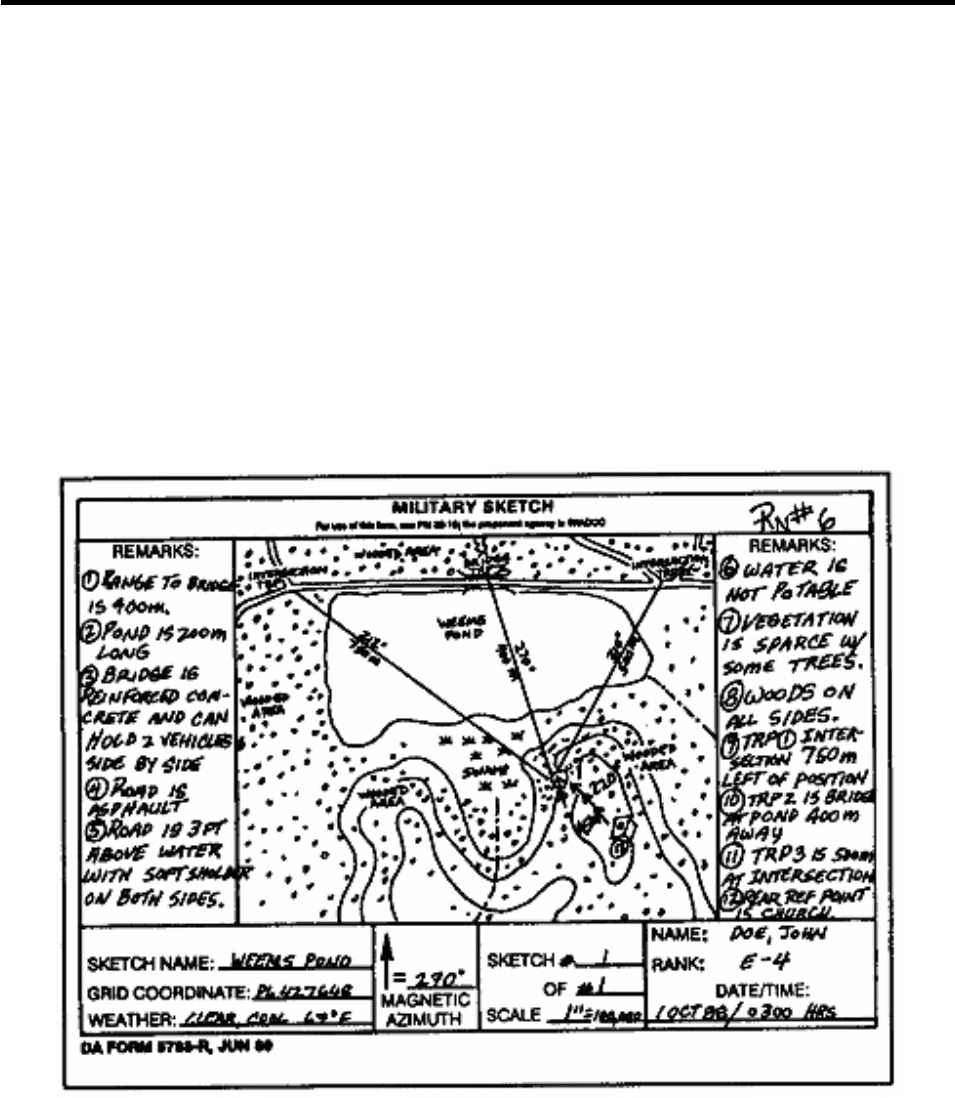 MILITARY SKETCH
RN#6
REMARKS:
① RANGE TO BRIDGE
IS 400m.
② POND IS 200m
LONG
③ BRIDGE IS
REINFORCED CON-
CRETE AND CAN
HOLD 2 VEHICLES
SIDE BY SIDE
④ ROAD IS
ASPHAULT
⑤ ROAD IS 3 FT
ABOVE WATER
WITH SOFT SHOLDER
ON BOTH SIDES.
WOODED AREA
INTERSECTION
INTERSECTION
WEEMS
POND
WOODED
AREA
SWAMP
WOODED
AREA
WOODED
AREA
270°
REMARKS:
⑥ WATER IS
NOT POTABLE
⑦ VEGETATION
IS SPARCE W/
SOME TREES.
⑧ WOODS ON
ALL SIDES.
⑨ TRP ① INTER-
SECTION 750m
LEFT OF POSITION
⑩ TRP 2 IS BRIDGE
AT POND 400m
AWAY
⑪ TRP 3 IS 500m
AT INTERSECTION
⑫ REAR REF POINT
IS CHURCH.
SKETCH NAME: WEEMS POND
GRID COORDINATE:
WEATHER: CLEAR, COOL
= 290°
MAGNETIC
AZIMUTH
SKETCH # 1
OF #1
SCALE 1"=
NAME: DOE, JOHN
RANK: E-4
DATE/TIME:
1 OCT 88/0300 HRS
DA FORM